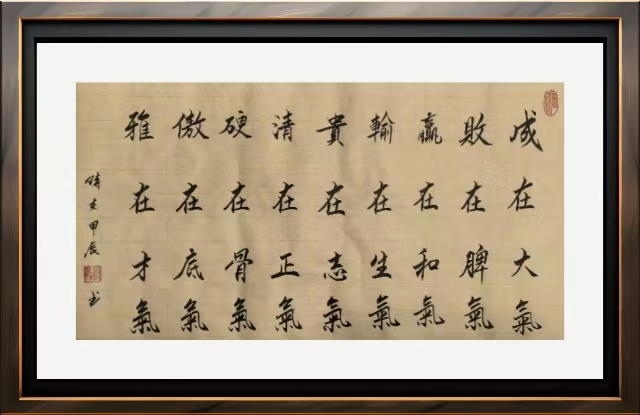 成在大氣
敗在脾氣
贏在和氣
輸在生氣
貴在志氣
清在正氣
硬在骨氣
傲在底氣
雅在才氣
時在甲辰